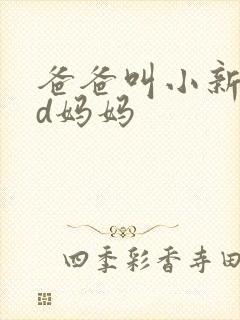 爸爸叫小新
d妈妈
四季彩香寺田